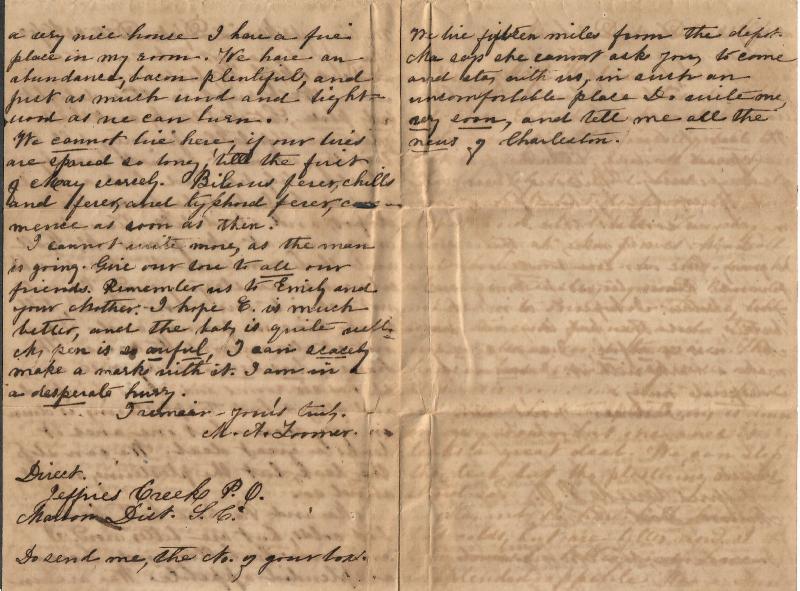 a very nice house I have a fire
place in my room. We have an
abundance, bacon plentiful, and
just as much wood and light-
wood as we can burn.
We cannot live here, if our lives
are spared so long, till the first
of May scarcely. Bilious fever, chills
and fever, and typhoid fever, com-
mence as soon as then.
I cannot write more, as the man
is going. Give our love to all our
friends. Remember us to Emily and
your Mother. I hope E. is much
better, and the baby is quite well.
My pen is so awful, I can scacely
make a mark with it. I am in a
a desperate hurry.
I remain yours truly.
M. A.
Direct.
Jeffries Creek P. O.
Marion Dist. S. C.
Do send me, the No. of your box.
We live fifteen miles from the depot.
Ma says she cannot ask you, to come
and stay with us, in such an
uncomfortable place Do write me,
very soon, and tell me all the
news of Charleston.